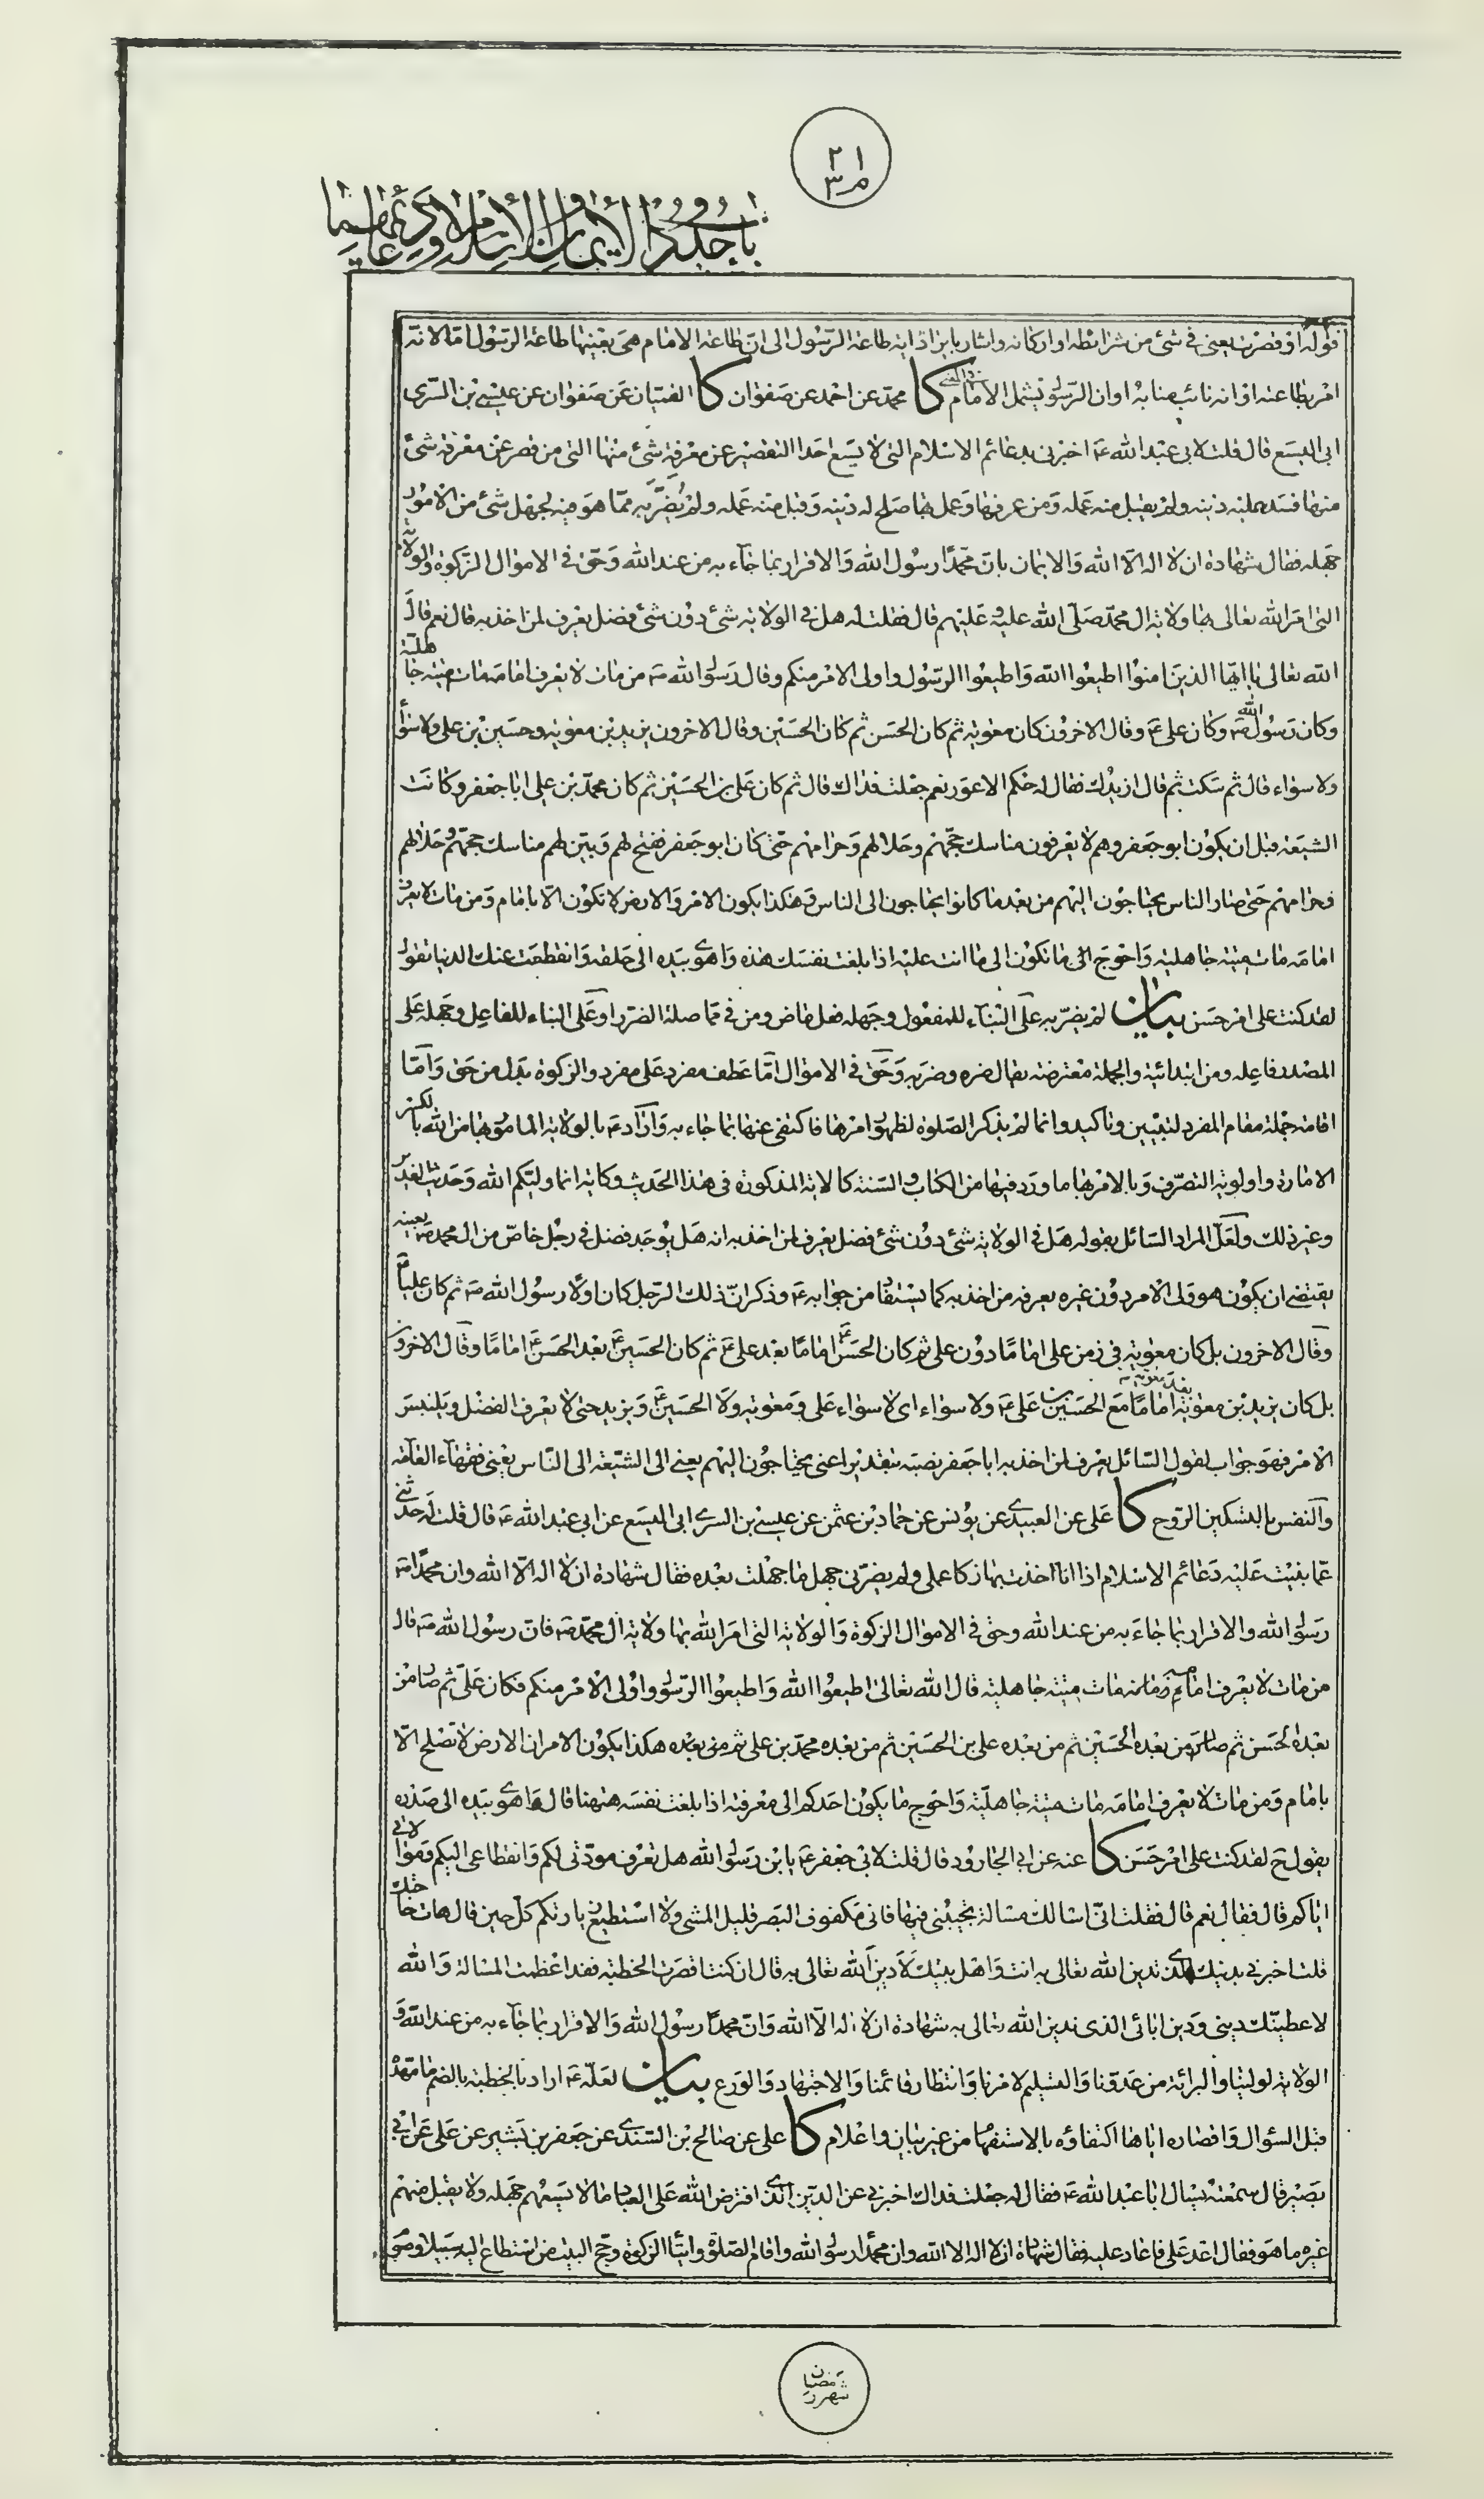 ٢١
م ٣
باب حدود الايمان والاسلام ودعائمهما
قوله او قصرت يعنى فى شئ من شرائطه او اركانه واشار بايراد اية طاعة الرسول الى ان طاعة الامام هى بعينها طاعة الرسول امّا لانّه
امر بطاعته او انه نائب منابه او ان الرسول يشمل الامام كا محمّد عن احمد عن صفوان كا الفتيان عن صفوان عن عيسى بن السّرى
ابى اليسع قال قلت لابى عبد الله ع اخبرنى بدعائم الاسلام التى لا يسع احدا التقصير عن معرفة شئ منها التى من قصر عن معرفة شئ
منها فسد عليه دينه ولم يقبل منه عمله ومن عرفها وعمل بها صلح له دينه وقبل منه عمله ولم يُضَرّ به ممّا هو فيه لجهل شئ من الامور
جهله فقال شهادة ان لا اله الّا الله والايمان بانّ محمّدًا رسول الله والاقرار بما جاء به من عند الله وحقّ فى الاموال الزكوة والولاية
التى امر الله تعالى بها ولاية ال محمّد صلّى الله عليه وعليهم قال فقلت له هل فى الولاية شئ دون شئ فضل يعرف لمن اخذ به قال نعم قال
الله تعالى يا ايّها الذين امنوا اطيعوا الله واطيعوا الرسول واولى الامر منكم وقال رسول الله ص من مات لا يعرف امامه مات ميتة جاهلية
وكان رسول الله ص وكان على ع وقال الاخرون كان معوية ثم كان الحسن ثم كان الحسين وقال الاخرون يزيد بن معوية وحسين بن على ولا سواء
ولا سواء قال ثم سكت ثم قال ازيدك فقال له حكم الاعور نعم جعلت فداك قال ثم كان على بن الحسين ثم كان محمّد بن على ابا جعفر وكانت
الشيعة قبل ان يكون ابو جعفر وهم لا يعرفون مناسك حجّهم وحلالهم وحرامهم حتّى كان ابو جعفر ففتح لهم وبيّن لهم مناسك حجّهم وحلالهم
وحرامهم حتى صار الناس يحتاجون اليهم من بعد ما كانوا يحتاجون الى الناس وهكذا يكون الامر والارض لا تكون الّا بامام ومن مات لا يعرف
امامه مات ميتة جاهلية واحوج الى ما تكون الى ما انت عليه اذا بلغت نفسك هذه واهوى بيده الى حلقه وانقطعت عنك الدنيا تقول
لقد كنت على امر حسن بيان لم يضرّ به على البناء للمفعول وجهله فعل ماض ومن فى ممّا صلة الضرر او على البناء للفاعل وجهله على
المصدر فاعله ومن ابتدائية والجملة معترضة يقال ضره وضر به وحق فى الاموال امّا عطف مفرد على مفرد والزكوة بدل من حق وامّا
اقامة جملة مقام المفرد لتبيين وتاكيد وانما لم يذكر الصّلوة لظهور امرها فاكتفى عنها بما جاء به واراد ع بالولاية المامور بها من الله بالكسر
الامارة واولوية التصرّف وبالامر بها ما ورد فيها من الكتاب والسّنة كالاية المذكورة فى هذا الحديث وكاية انما وليّكم الله وحديث الغدير
وغير ذلك ولعلّ المراد السّائل بقوله هل فى الولاية شئ دون شئ فضل يعرف لمن اخذ به انه هل يوجد فضل فى رجل خاصّ من ال محمد ص بعينه
يقتضى ان يكون هو ولى الامر دون غيره يعرفه من اخذ به كما يستفاد من جوابه ع وذكر انّ ذلك الرّجل كان اولا رسول الله ص ثم كان عليا
وقال الاخرون بل كان معوية فى زمن على اماما دون على ثم كان الحسن ع اماما بعد على ع ثم كان الحسين ع بعد الحسن ع اماما وقال الاخرون
بل كان يزيد بن معوية بعد معوية اماما مع الحسين بن على ع ولا سواء اى لا سواء على ومعوية ولا الحسين ع ويزيد حتى لا يعرف الفضل ويلتبس
الامر فهو جواب لقول السّائل يعرف لمن اخذ به ابا جعفر نصبه بتقدير اعنى يحتاجون اليهم يعنى الى الشّيعة الى النّاس يعنى فقهاء العامّة
والنفس بالتسكين الرّوح كا على عن العبيدى عن يونس عن حماد بن عثمن عن عيسى بن السرى ابى اليسع عن ابى عبد الله ع قال قلت له حدثنى
عمّا بنيت عليه دعائم الاسلام اذا انا اخذت بها زكا عملى ولم يضرّنى جهل ما جهلت بعده فقال شهادة ان لا اله الّا الله وان محمّدًا ص
رسول الله والاقرار بما جاء به من عند الله وحق فى الاموال الزكوة والولاية التى امر الله بها ولاية ال محمّد ص فان رسول الله ص قال
من مات لا يعرف امامه مات ميتة جاهلية قال الله تعالى اطيعوا الله واطيعوا الرسول واولى الامر منكم فكان علىّ ثم صار من
بعده الحسن ثم صار من بعده الحسين ثم من بعده على بن الحسين ثم من بعده محمّد بن على ثم من بعده هكذا يكون الامر ان الارض لا تصلح الّا
بامام ومن مات لا يعرف امامه مات ميتة جاهليّة واحوج ما يكون احدكم الى معرفته اذا بلغت نفسه هيهنا قال واهوى بيده الى صدره
يقول ح لقد كنت على امر حسن كا عنه عن ابى الجارود قال قلت لابى جعفر ع يا بن رسول الله هل تعرف مودّتى لكم وانقطاعى اليكم وموالاتى
اياكم قال فقال نعم قال فقلت انّى اسالك مسالة تجيبنى فيها فانى مكفوف البصر قليل المشى ولا استطيع زيارتكم كلّ حين قال هات حاجتك
قلت اخبرنى بدينك الذى تدين الله تعالى به انت واهل بيتك لادين الله تعالى به قال ان كنت اقصرت الخطبة فقد اعظمت المسالة والله
لاعطينّك دينى ودين ابائى الذى ندين الله تعالى به شهادة ان لا اله الّا الله وانّ محمدًا رسول الله والاقرار بما جاء به من عند الله و
الولاية لولينا والبرائة من عدوّنا والتسليم لامرنا وانتظار قائمنا والاجتهاد والورع بيان لعلّه ع اراد بالخطبة بالضم ما مهّد
قبل السؤال واقصاره اياها اكتفاؤه بالاستفهام من غير بيان واعلام كا على عن صالح بن السّندى عن جعفر بن بشير عن على عن ابى
بصير قال سمعته يسال ابا عبد الله ع فقال له جعلت فداك اخبرنى عن الدّين الذى افترض الله على العباد ما لا يسعهم جهله ولا يقبل منهم
غيره ما هو فقال اعد على فاعاد عليه فقال شهادة ان لا اله الا الله وان محمّدا رسول الله واقام الصّلوة وايتاء الزكوة وحجّ البيت من استطاع اليه سبيلا وصوم
شهر رمضان